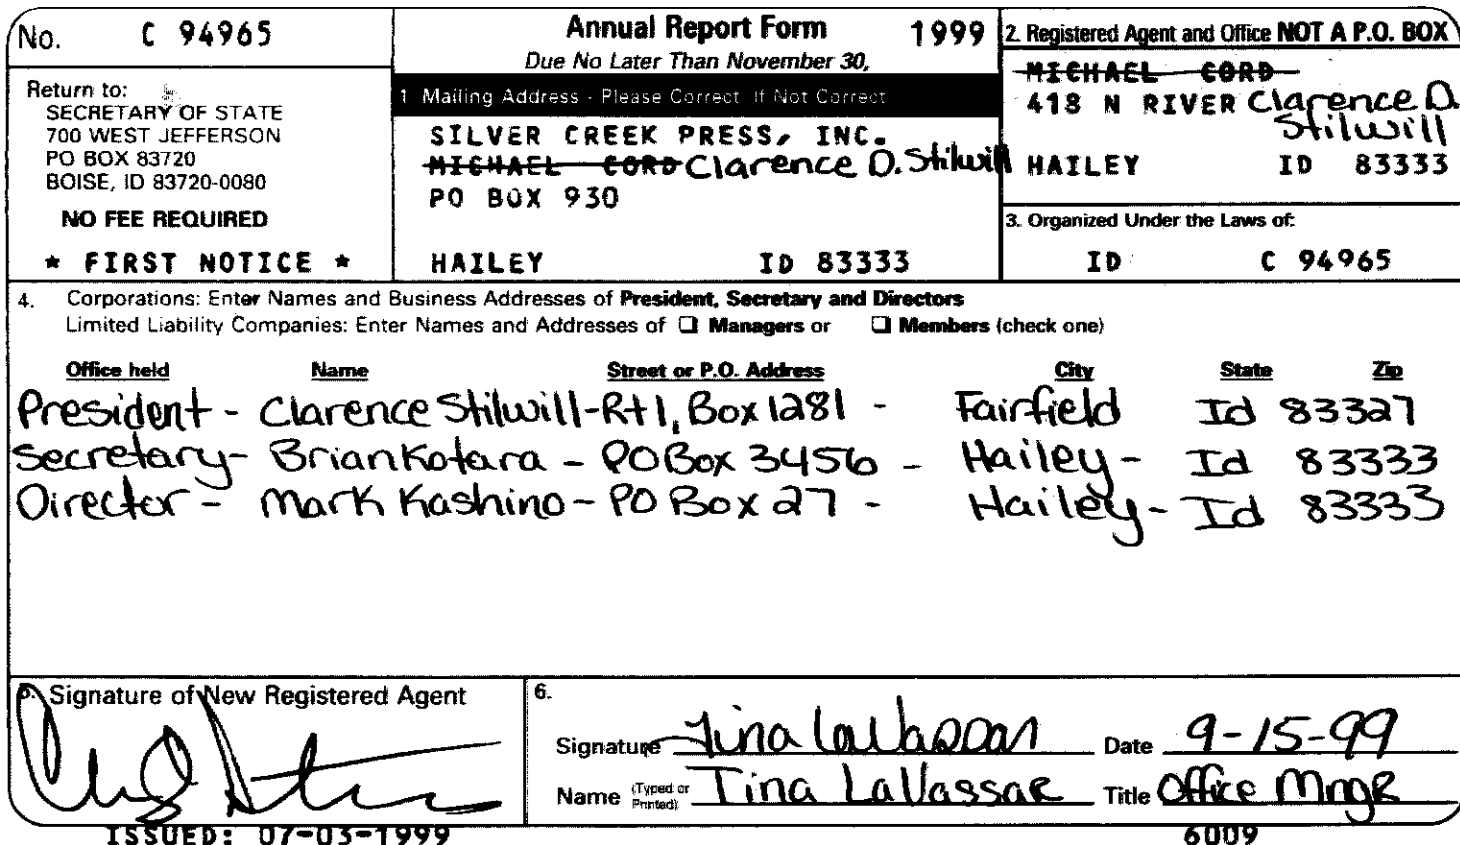 No. C 94965
Return to:
SECRETARY OF STATE
700 WEST JEFFERSON
PO BOX 83720
BOISE, ID 83720-0080
NO FEE REQUIRED
* FIRST NOTICE *
Annual Report Form 1999
Due No Later Than November 30,
1 Mailing Address - Please Correct If Not Correct
SILVER CREEK PRESS, INC.
MICHAEL CORD Clarence D. Stilwill
PO BOX 930
HAILEY ID 83333
2. Registered Agent and Office NOT A P.O. BOX
MICHAEL CORD
418 N RIVER Clarence D.
Stilwill
HAILEY ID 83333
3. Organized Under the Laws of:
ID C 94965
4. Corporations: Enter Names and Business Addresses of President, Secretary and Directors
Limited Liability Companies: Enter Names and Addresses of ☐ Managers or ☐ Members (check one)
Office held Name Street or P.O. Address City State Zip
President - Clarence Stilwill - Rt 1, Box 1281 - Fairfield Id 83327
Secretary - Brian Kotara - PO Box 3456 - Hailey - Id 83333
Director - Mark Kashino - PO Box 27 - Hailey - Id 83333
5. Signature of New Registered Agent
6.
Signature Tina LaVassar Date 9-15-99
Name (Typed or Printed) Tina LaVassar Title Office MngR
ISSUED: 07-03-1999 6009